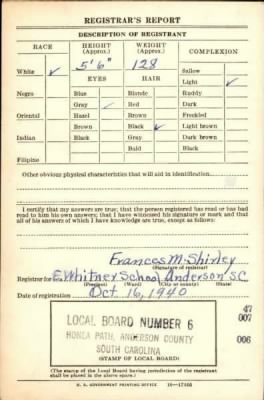 REGISTRAR'S REPORT
DESCRIPTION OF REGISTRANT
RACE HEIGHT (Approx.) WEIGHT (Approx.) COMPLEXION
White ✓ 5' 6" 128 Sallow
EYES HAIR Light ✓
Negro Blue Blonde Ruddy
Gray ✓ Red Dark
Oriental Hazel Brown Freckled
Brown Black ✓ Light brown
Indian Black Gray Dark brown
Bald Black
Filipino
Other obvious physical characteristics that will aid in identification
I certify that my answers are true; that the person registered has read or has had
read to him his own answers; that I have witnessed his signature or mark and that
all of his answers of which I have knowledge are true, except as follows:
Frances M. Shirley
(Signature of registrar)
Registrar for E. Whitner School Anderson S.C.
(Precinct) (Ward) (City or county) (State)
Date of registration Oct. 16, 1940
LOCAL BOARD NUMBER 6 47
007
HONEA PATH, ANDERSON COUNTY
SOUTH CAROLINA 006
(STAMP OF LOCAL BOARD)
(The stamp of the Local Board having jurisdiction of the registrant
shall be placed in the above space.)
U. S. GOVERNMENT PRINTING OFFICE 16—17105